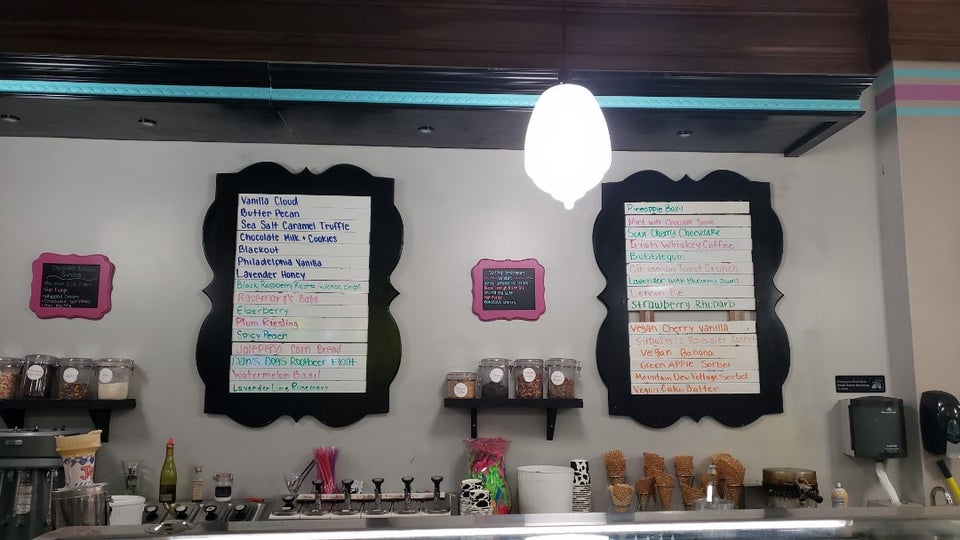 Vanilla Cloud
Butter Pecan
Sea Salt Caramel Truffle
Chocolate Milk + Cookies
Blackout
Philadelphia Vanilla
Lavender Honey
Black Raspberry Ricotta w/choc chips
Rosemary's Baba
Elderberry
Plum Riesling
Spicy Peach
Jalepeño Corn Bread
Dan's Dogs Rootbeer Float
Watermelon Basil
Lavender Lime Rosemary
Chocolate
Sundae
Hot Fudge
Whipped Cream
Pineapple Basil
Mint with Chocolate
Sour Cherry Cheesecake
Irish Whiskey Coffee
Bubblegum
Cinnamon Toast Crunch
Lavender with
Lemon Pie
Strawberry Rhubarb
Vegan Cherry Vanilla
Strawberry Rosewater Sorbet
Vegan Banana
Green APPle Sorbet
Mountain Dew Voltage Sorbet
Vegan Cake Batter